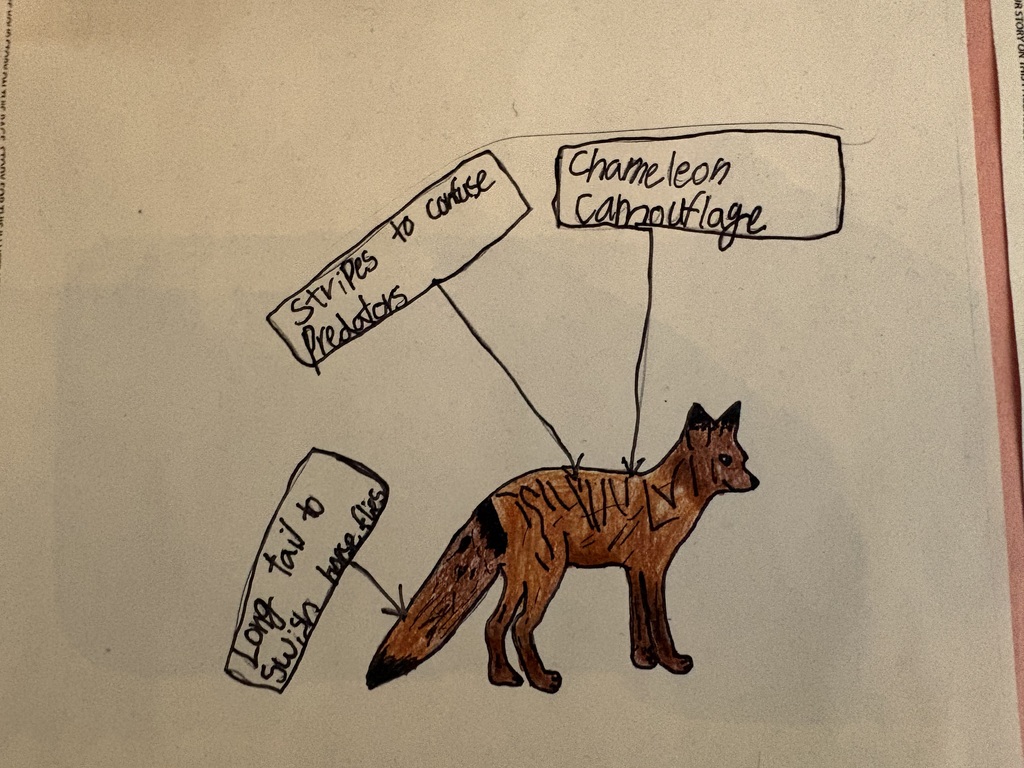 Chameleon
Camouflage
Stripes to confuse
Predators
Long tail to
Swish horse flies